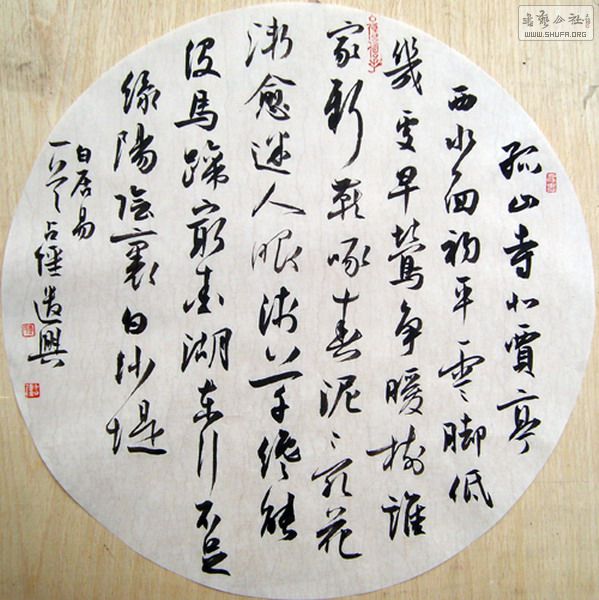 孤山寺北賈亭
西水面初平雲脚低
幾處早鶯争暖樹誰
家新燕啄春泥亂花
漸愈迷人眼淺草纔能
没馬蹄最愛湖東行不足
綠陽陰裏白沙堤
白居易
遣興
WWW.SHUFA.ORG